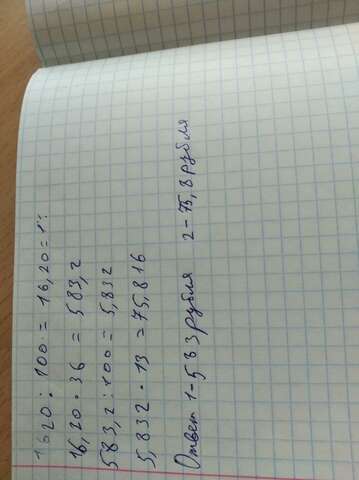 1620 : 100 = 16,20 = 1%
16,20 · 36 = 583,2
583,2 : 100 = 5,832
5,832 · 13 = 75,816
Ответ 1-583 рубля 2-75,8 рубля